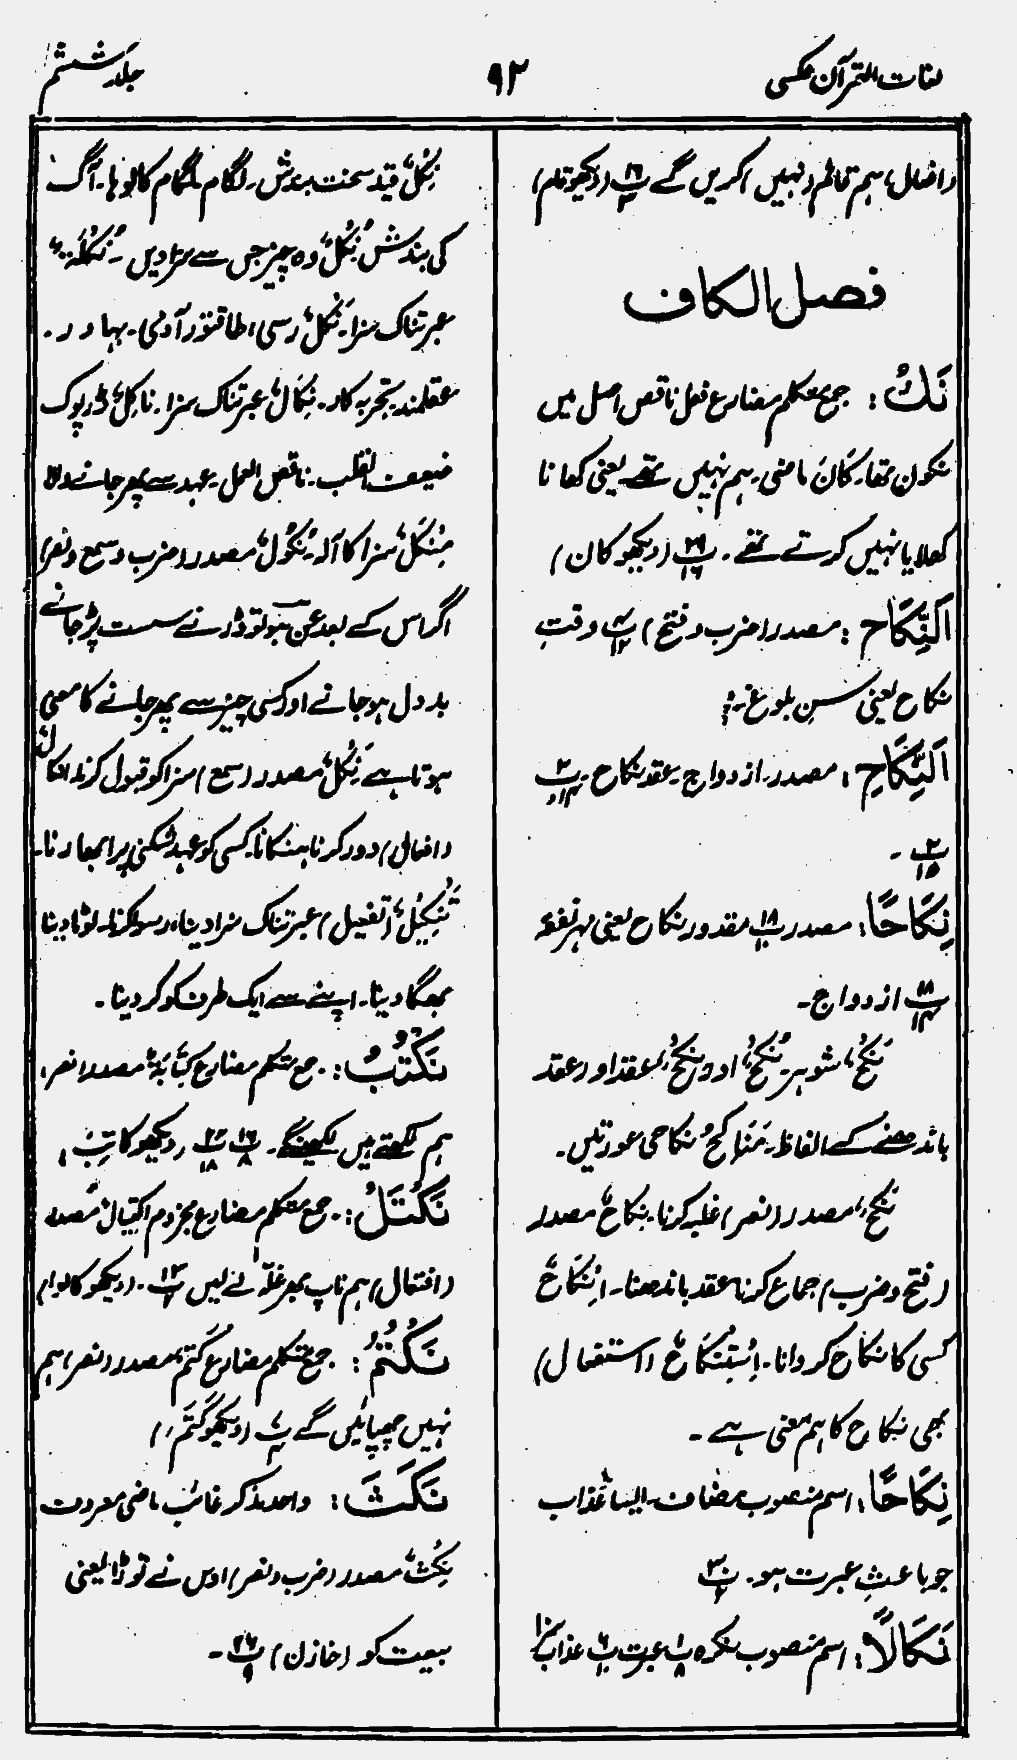 لغات القرآن عکسی
۹۲
جلد ششم
(افعال) ہم قائم (نہیں) کریں گے پ ۱۶/۳ (دیکھو قام)
فصل الکاف
نَكُ: جمع متکلم مضارع فعل ناقص اصل میں
نکون تھا۔ کَانَ ماضی۔ ہم نہیں تھے یعنی کھانا
کھلایا نہیں کرتے تھے۔ پ ۲۹/۱۶ (دیکھو کان)
اَلنِّکَاحِ: مصدر (ضرب و فتح) پ ۴/۱۲ وقتِ
نکاح یعنی سنِ بلوغ۔
اَلنِّکَاحِ: مصدر۔ ازدواج۔ عقد نکاح۔ پ ۲/۱۴،
پ ۲/۱۵ ۔
نِکَاحًا: مصدر پ ۱۸/۱۰ مقدور نکاح یعنی مہر نفقہ
پ ۱۸/۱۴ ازدواج۔
نِکْحٌ، شوہر۔ نُکْحٌ، اور نِکْحٌ، عقد اور عقد
باندھنے کے الفاظ۔ مَنَاکِحُ نکاحی عورتیں۔
نَکْحٌ، مصدر (نصر) غلبہ کرنا۔ نِکَاحٌ مصدر
(فتح و ضرب) جماع کرنا عقد باندھنا۔ اِنْکَاحٌ
کسی کا نکاح کروانا۔ اِسْتِنْکَاحٌ (استفعال)
بھی نکاح کا ہم معنی ہے۔
نِکَاحًا: اسم منصوب مضاف۔ ایسا عذاب
جو باعثِ عبرت ہو۔ پ ۳۰/۲
نَکَالًا: اسم منصوب نکرہ پ ۱/۸ عبرت پ ۶/۱۰ عذاب سزا
نِکْلٌ قید سخت بندش۔ لگام لگام کا لوہا۔ آگ
کی بندش نُکْلٌ وہ چیز جس سے سزا دیں۔ نُکْلَةٌ
عبرتناک سزا۔ نَکَلٌ رسی، طاقتور آدمی۔ بہادر۔
عقلمند تجربہ کار۔ نَکَالٌ عبرتناک سزا۔ نَاکِلٌ ڈرپوک
ضعیف القلب۔ ناقص العمل۔ عہد سے پھر جانے والا
مِنْکَلٌ سزا کا آلہ نُکُوْلٌ مصدر (ضرب و سمع و نصر)
اگر اس کے بعد عن ہو تو ڈرنے سست پڑ جانے
بددل ہو جانے اور کسی چیز سے پھر جانے کا معنی
ہوتا ہے نَکَلٌ مصدر (سمع) سزا کو قبول کرنا انکالٌ
(افعال) دور کرنا ہنکانا۔ کسی کو عہد شکنی پر ابھارنا۔
تَنْکِیْلٌ (تفعیل) عبرتناک سزا دینا، رسوا کرنا۔ لوٹا دینا
بھگا دینا۔ اپنے سے ایک طرف کو کر دینا۔
نَکْتُبُ: جمع متکلم مضارع کِتَابَۃٌ مصدر (نصر)
ہم لکھتے ہیں لکھینگے۔ پ ۱۶/۸ پ ۲۲/۱۸ (دیکھو کاتِبٌ)
نَکْتَلْ: جمع متکلم مضارع مجزوم اکتیالٌ مصدر
(افتعال) ہم ناپ بھر غلّہ لے لیں پ ۱۳/۲۔ (دیکھو کالوا)
نَکْتُمُ: جمع متکلم مضارع کَتْمٌ مصدر (نصر) ہم
نہیں چھپائیں گے پ ۷/۴ (دیکھو کَتَمَ)
نَکَثَ: واحد مذکر غائب ماضی معروف
نِکْثٌ مصدر (ضرب و نصر) اوس نے توڑا یعنی
بیعت کو (خازن) پ ۲۶/۹ ۔